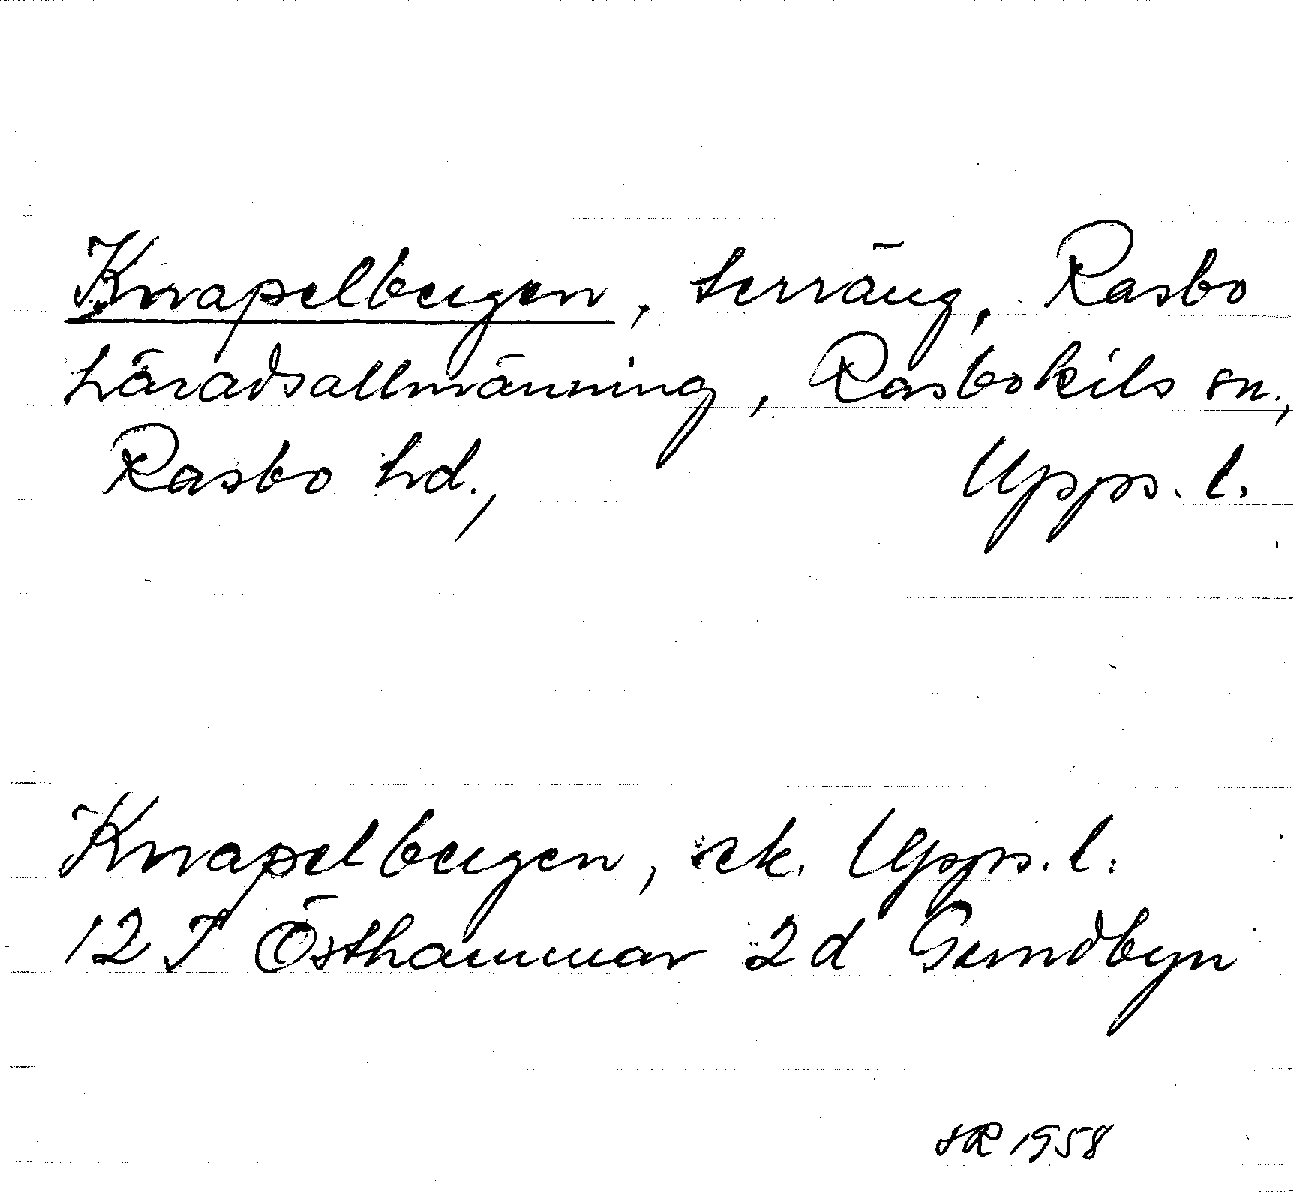 Knapelbergen, terräng, Rasbo
häradsallmänning, Rasbokils sn.,
Rasbo hd., Upps. l.
Knapelbergen, ek. Upps. l.
12 I Östhammar 2d Gundbyn
SR 1958